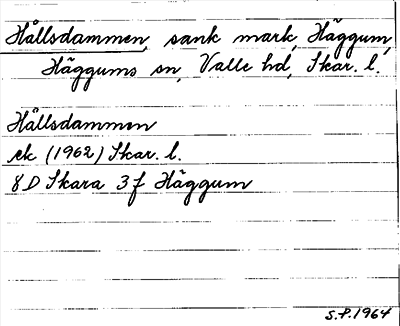 Hållsdammen, sank mark, Häggum,
Häggums sn, Valle hd, Skar. l.
Hållsdammen
ek (1962) Skar. l.
8D Skara 3f Häggum
S.P.1964